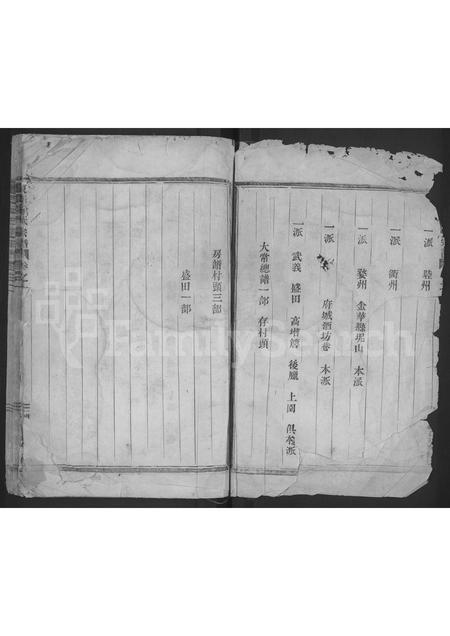 一派 睦州
一派 衢州
一派 婺州 金華縣 山 本派
一派 府城酒坊巷 本派
一派 武義 盛田 高 後 上 派
大常總譜一部 存村頭
房譜村頭三部
盛田一部
FamilySearch